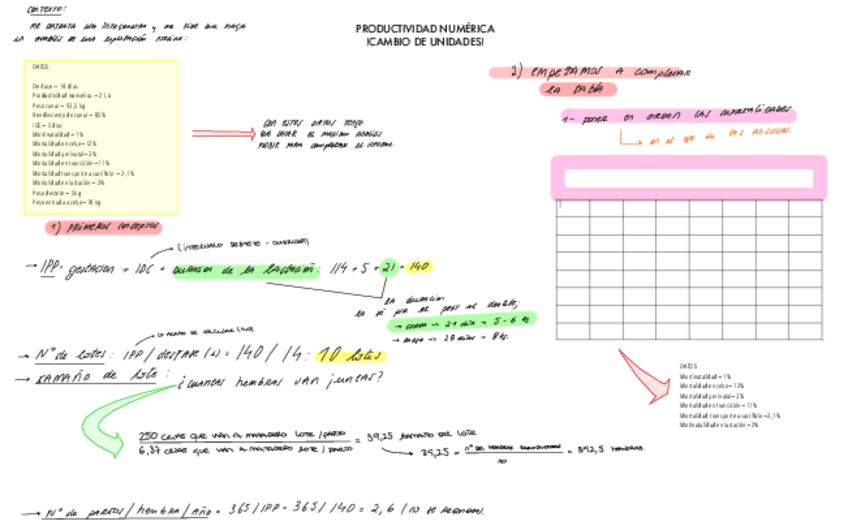 CONTEXTO:
ME CONTRATA UNA INTEGRADORA y ME PIDE QUE HAGA
UN ANÁLISIS DE UNA EXPLOTACIÓN PORCINA:
PRODUCTIVIDAD NUMÉRICA
!CAMBIO DE UNIDADES!
DATOS:
Destete = 14 días
Productividad numérica = 21,6
Peso canal = 92,5 kg
Rendimiento de canal = 85%
IDC = 5 días
Mortinatalidad = 1%
Mortalidad en cebo = 12%
Mortalidad perinatal = 2%
Mortalidad en transición = 11%
Mortalidad transporte a sacrificio = 2,1%
Mortalidad en lactación = 2%
Peso destete = 5 kg
Peso entrada a cebo = 18 kg
CON ESTOS DATOS TENGO
QUE SACAR EL MÁXIMO ANÁLISIS
POSIBLE PARA COMPLETAR EL INFORME
2) EMPEZAMOS A COMPLETAR
LA TABLA
1- PONER EN ORDEN LAS MORTALIDADES
EN EL QUE DE LAS
1) PRIMEROS CONCEPTOS
(INTERVALO DESTETE - CUBRICIÓN)
→ IPP = gestación + IDC + DURACIÓN DE LA LACTACIÓN: 114 + 5 + 21 = 140
LA DURACIÓN
LA SÉ POR EL PESO AL DESTETE;
→ 21 DÍA → 5 - 6 KG
→ 28 DÍAS → 8 KG.
→ Nº de lotes: IPP / DESTETE = 140 / 14 : 10 lotes
→ TAMAÑO DE LOTE: ¿CUANTAS HEMBRAS VAN JUNTAS?
250 CERDOS QUE VAN A MATADERO LOTE / PARTO
6,37 CERDOS QUE VAN A MATADERO LOTE / PARTO
= 39,25 TAMAÑO DEL LOTE
→ 39,25 = Nº DE HEMBRAS / 10 = 392,5 HEMBRAS.
→ Nº DE PARTOS / HEMBRA / AÑO = 365 / IPP = 365 / 140 = 2,6 (NO SE REDONDEA)
DATOS
Mortinatalidad = 1%
Mortalidad en cebo = 12%
Mortalidad perinatal = 2%
Mortalidad en transición = 11%
Mortalidad transporte a sacrificio = 2,1%
Mortinatalidad en lactación = 2%